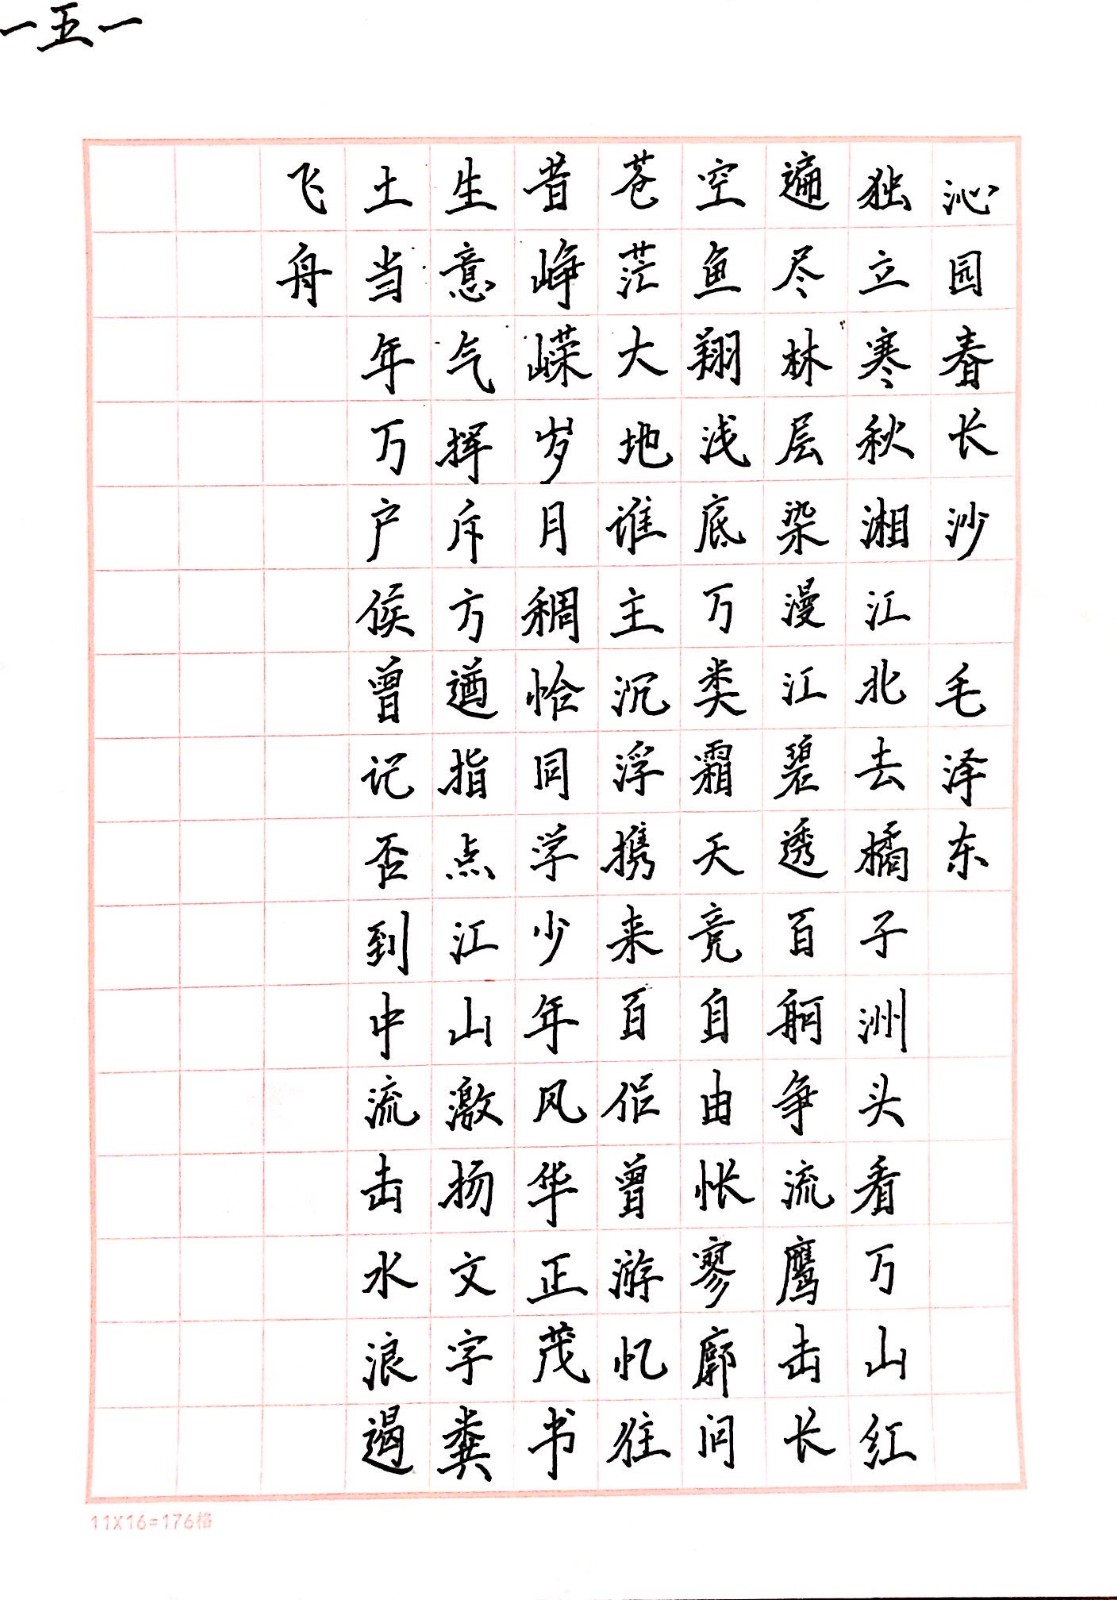 一五一
沁园春长沙 毛泽东
独立寒秋湘江北去橘子洲头看万山红
遍尽林层染漫江碧透百舸争流鹰击长
空鱼翔浅底万类霜天竞自由怅寥廓问
苍茫大地谁主沉浮携来百侣曾游忆往
昔峥嵘岁月稠恰同学少年风华正茂书
生意气挥斥方遒指点江山激扬文字粪
土当年万户侯曾记否到中流击水浪遏
飞舟
11X16=176格